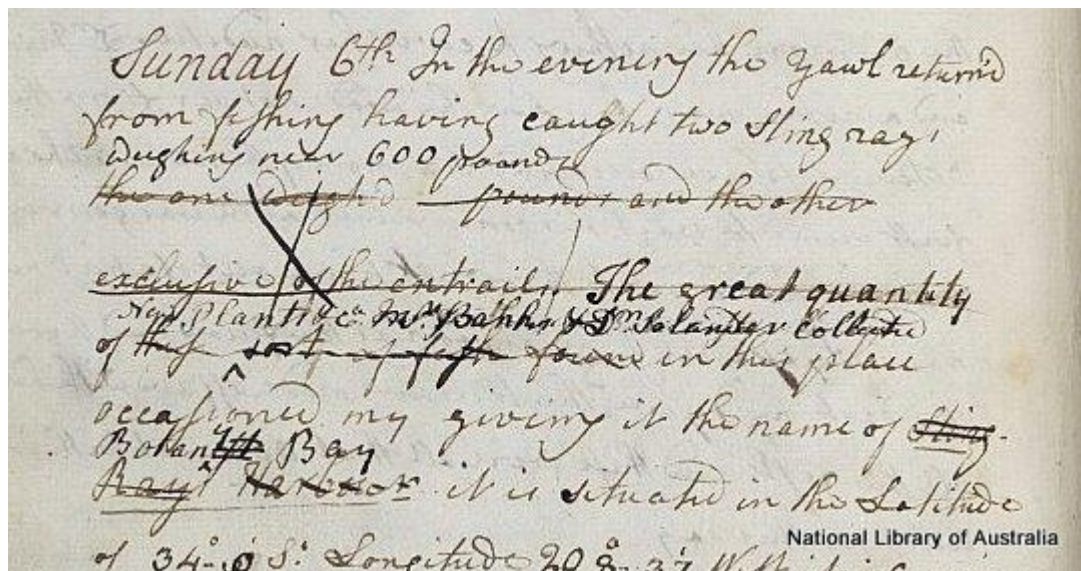 Sunday 6th In the evening the yawl return'd
from fishing having caught two Sting rays
weighing near 600 pounds
the one weigh'd pounds and the other
exclusive of the entrails. The great quantity
New Plants &ca Mr. Banks & Dr Solander collected
of these sort of fish found in this place
occasioned my giving it the name of Sting-
Botany Bay
Ray's Harbour it is situated in the Latitude
of 34°..0' S. Longitude 208°..37' W.
National Library of Australia